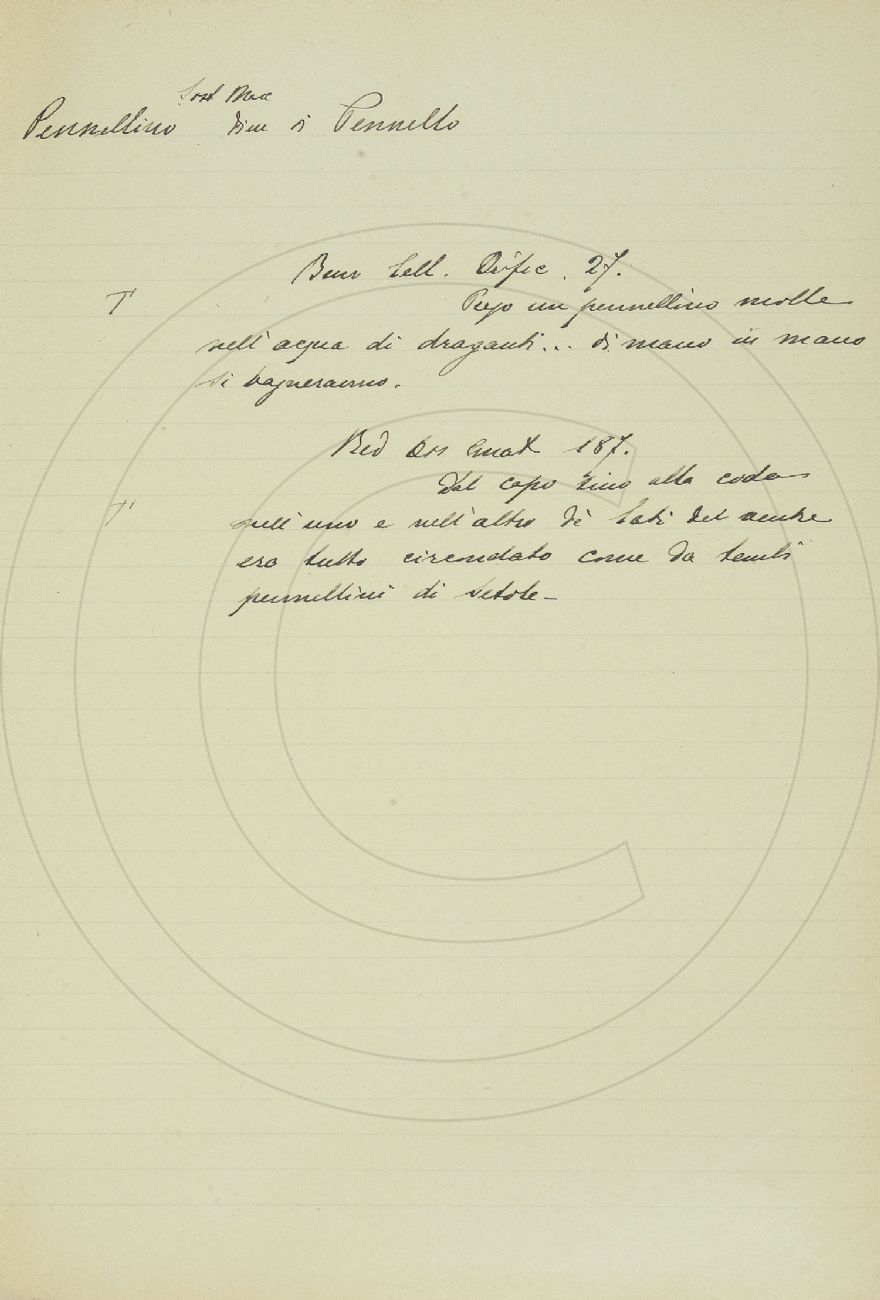 Sost Masc
Pennellino Dim di Pennello
Benv Cell. Orefic. 27.
T Pego un pennellino molle
nell'acqua di draganti... di mano in mano
si bagneranno.
Red Oss 187.
Dal capo sino alla coda
T nell'uno e nell'altro de' lati del ventre
era tutto circondato come da tanti
pennellini di setole_